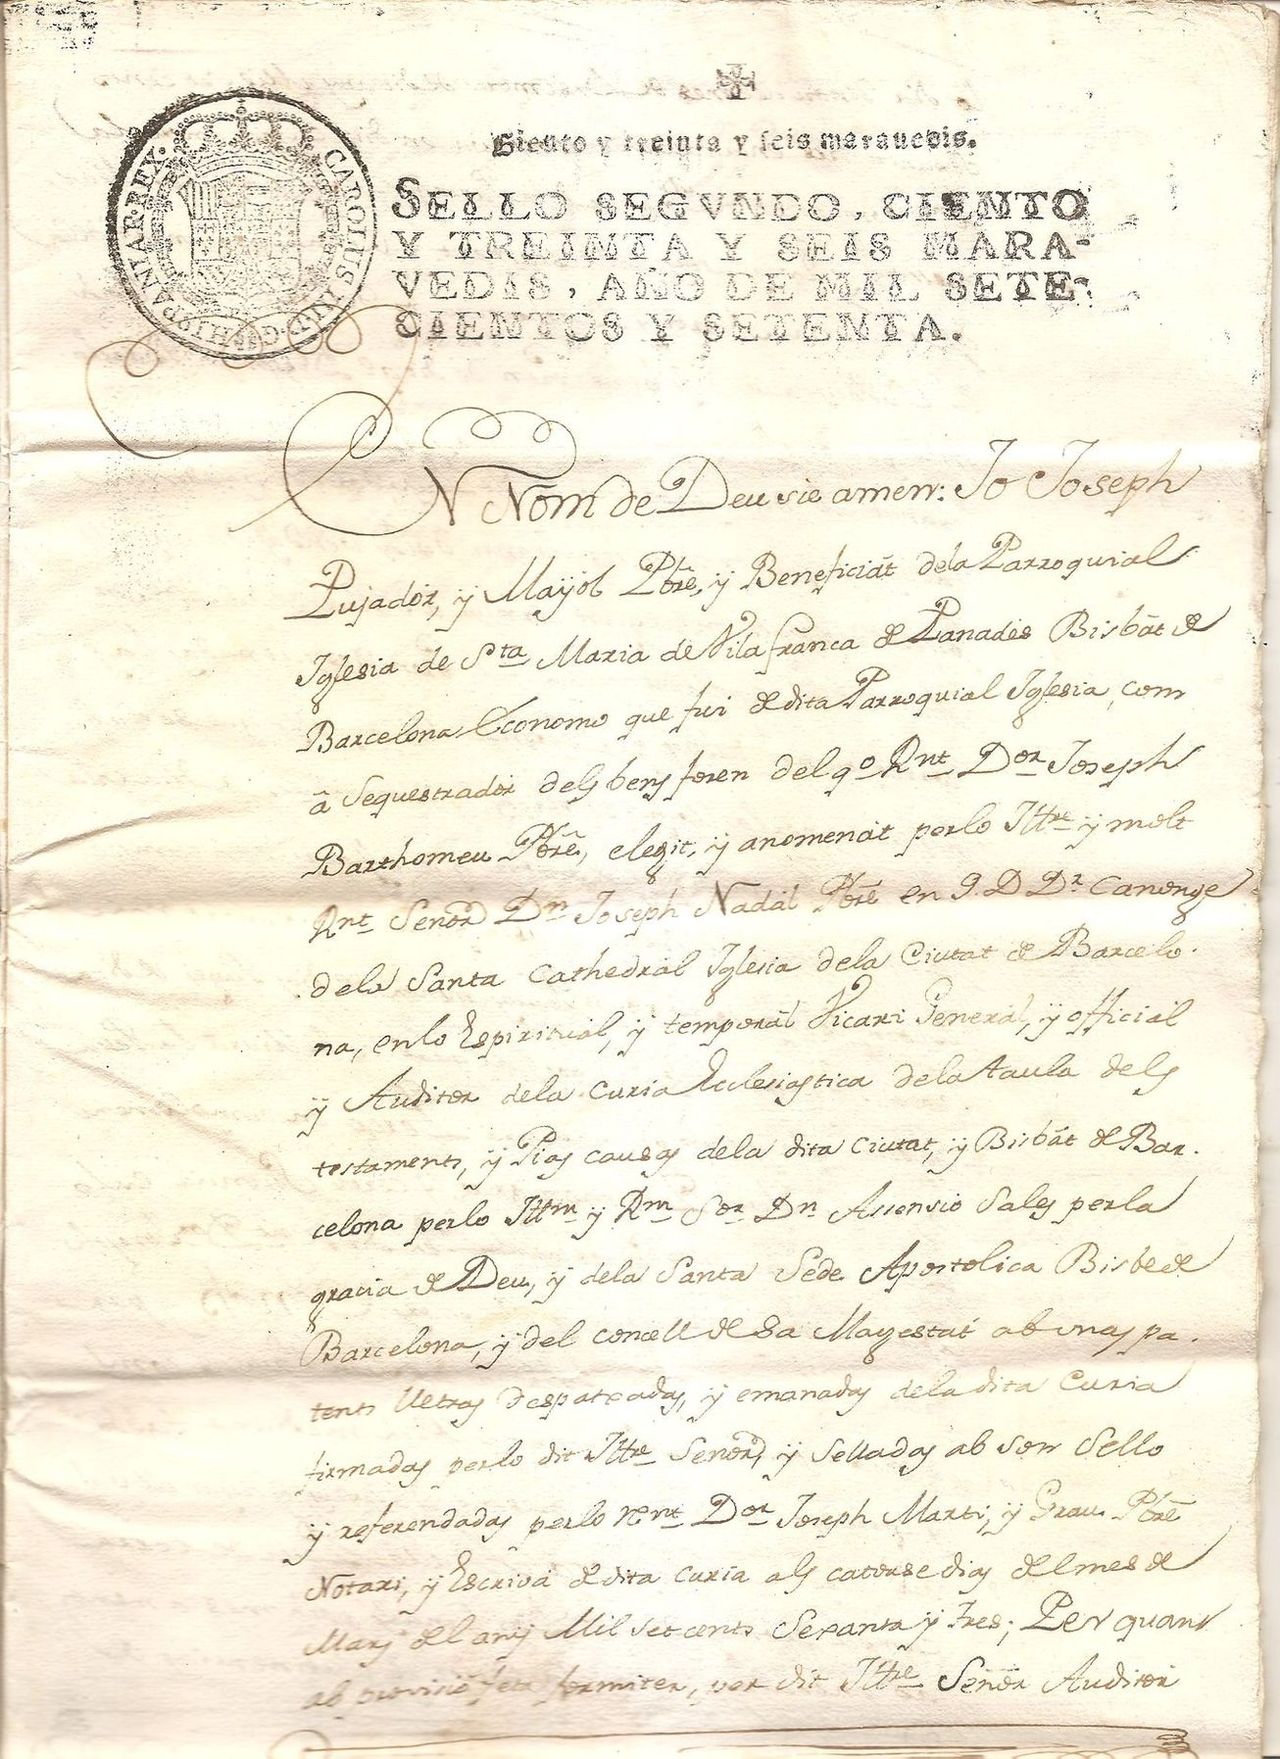 Ciento y treinta y seis marauedis.
SELLO SEGVNDO, CIENTO
Y TREINTA Y SEIS MARA-
VEDIS, AÑO DE MIL SETE-
CIENTOS Y SETENTA.
CAROLUS III D G HISPANIAR REX
EN Nom de Deu sie amen: Jo Joseph
Pujador, y Mayol Pbre, y Beneficiat dela Parroquial
Iglesia de Sta Maria de Vilafranca de Panadès Bisbat de
Barcelona Economo que fui de dita Parroquial Iglesia, com
â Sequestrador dels bens foren del qº Rnt Dor Joseph
Barthomeu Pbre, elegit, y anomenat perlo Iltre y molt
Rnt Senor Dn Joseph Nadal Pbre en J. D Dr Canonge
dela Santa Cathedral Iglesia dela Ciutat de Barcelo-
na, enlo Espiritual, y temporal Vicari General, y official
y Auditor dela Curia Ecclesiastica dela Taula dels
testaments, y Pias causas dela dita Ciutat, y Bisbat de Bar-
celona perlo Iltm y Rm Sor Dn Assensio Sales perla
gracia de Deu, y dela Santa Sede Apostolica Bisbe de
Barcelona, y del concell de Sa Magestat ab unas pa-
tents lletras despatxadas, y emanadas dela dita Curia
firmadas perlo dit Iltre Senor, y selladas ab son Sello
y referendadas perlo Rnt Dor Joseph Marti, y Grau Pbre
Notari, y Escrivá de dita Curia als catorse dias del mes de
Mars del any Mil setcents Sexanta y tres; Per quant
ab provisió feta formiter, per dit Iltre Señor Auditor